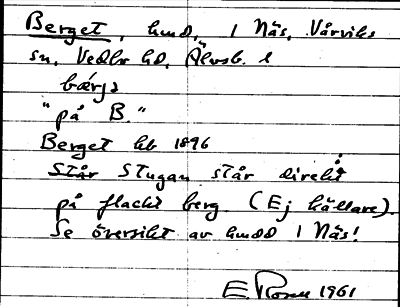 Berget, hmd, i Näs, Vårviks
sn, Vedbo hd, Älvsb. l
bærjə
"på B."
Berget hb 1896
Står Stugan står direkt
på flackt berg. (Ej källare).
Se översikt av hmdd i Näs!
E. Rosen 1961